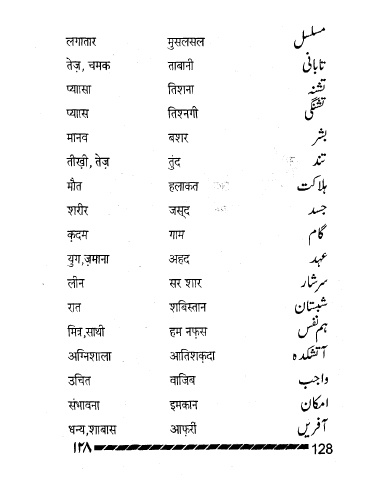 लगातार मुसलसल مسلسل
तेज़, चमक ताबानी تابانی
प्यासा तिशना تشنہ
प्यास तिश्नगी تشنگی
मानव बशर بشر
तीख़ी, तेज़ तुंद تند
मौत हलाकत ہلاکت
शरीर जस्द جسد
क़दम गाम گام
युग,ज़माना अहद عہد
लीन सर शार سرشار
रात शबिस्तान شبستان
मित्र,साथी हम नफ़स ہم نفس
अग्निशाला आतिशक़दा آتشکدہ
उचित वाजिब واجب
संभावना इमकान امکان
धन्य,शाबास आफ़रीं آفریں
۱۲۸ 128